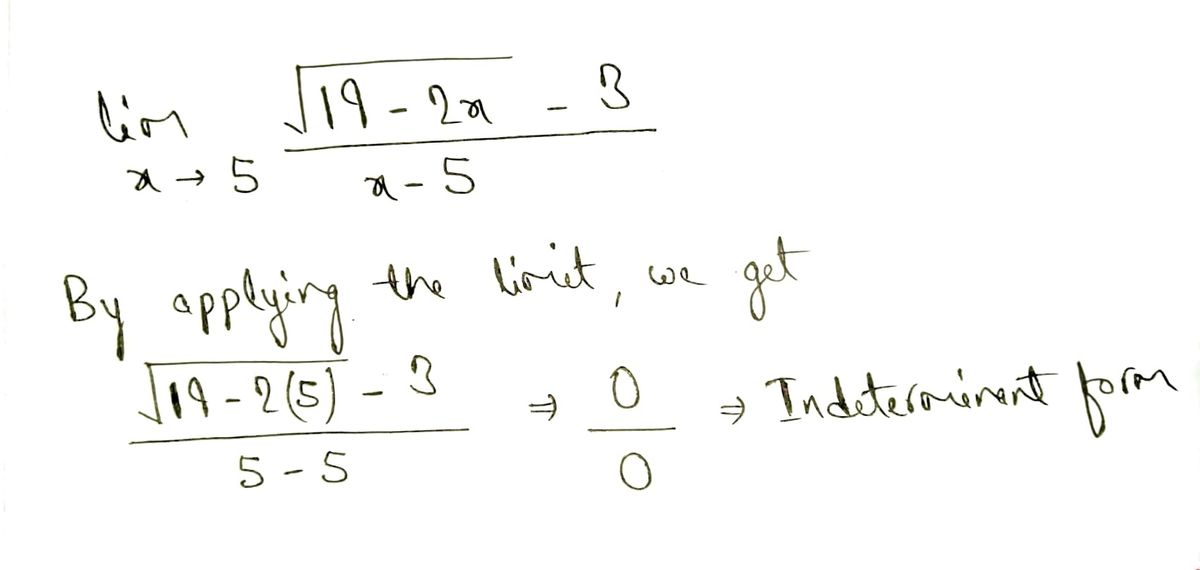 lim x → 5 (√(19 - 2x) - 3) / (x - 5)
By applying the limit, we get
(√(19 - 2(5)) - 3) / (5 - 5) ⇒ 0 / 0 ⇒ Indeterminent form